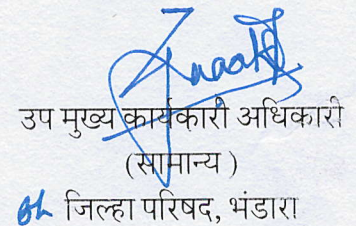 उप मुख्य कार्यकारी अधिकारी
(सामान्य)
जिल्हा परिषद, भंडारा